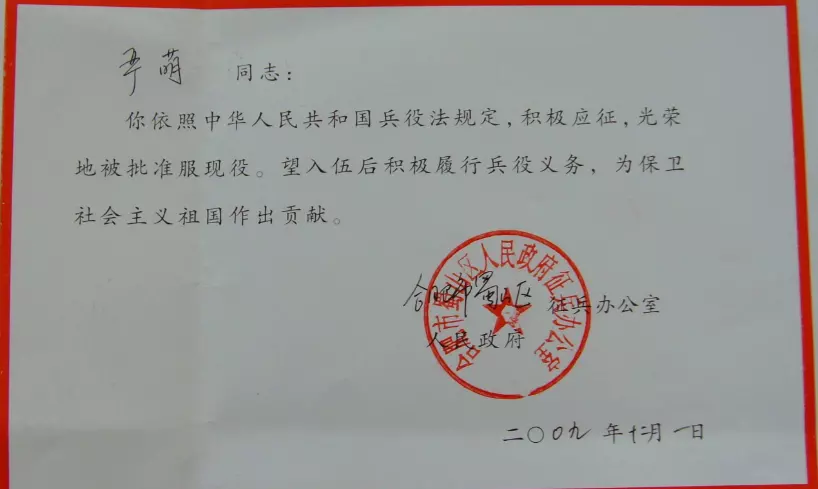 严萌 同志：
你依照中华人民共和国兵役法规定，积极应征，光荣
地被批准服现役。望入伍后积极履行兵役义务，为保卫
社会主义祖国作出贡献。
合肥市蜀山区人民政府征兵办公室
合肥市蜀山区 征兵办公室
人民政府
二〇〇九年十二月一日